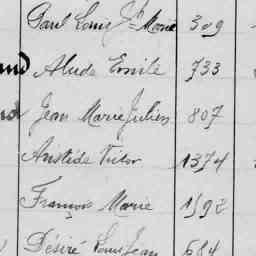 Paul Louis Jh Marie 309
Alude Emile 733
Jean Marie Julien 807
Aristide Victor 1374
François Marie 1592
Désiré Louis Jean 684